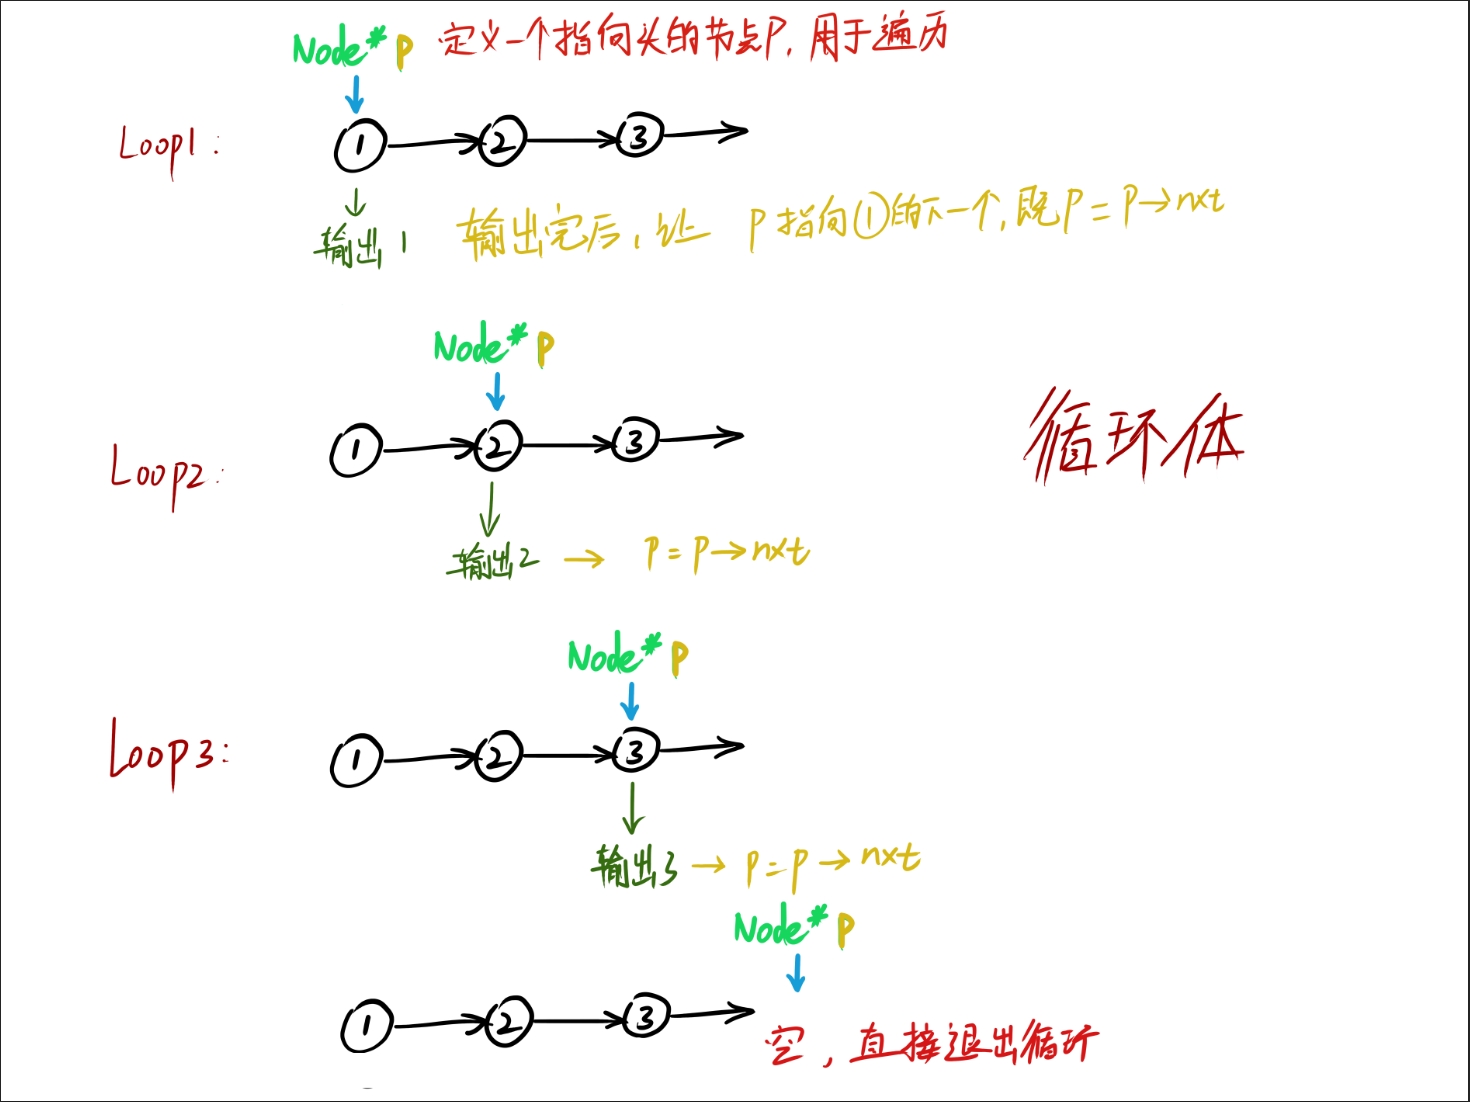 Node* p 定义一个指向头的节点P，用于遍历
Loop1：
① → ② → ③ →
输出1 输出完后，让 P指向①的下一个，既P=P→nxt
Node* p
循环体
Loop2：
① → ② → ③ →
输出2 → P=P→nxt
Node* p
Loop3：
① → ② → ③ →
输出3 → P=P→nxt
Node* p
① → ② → ③ →
空，直接退出循环